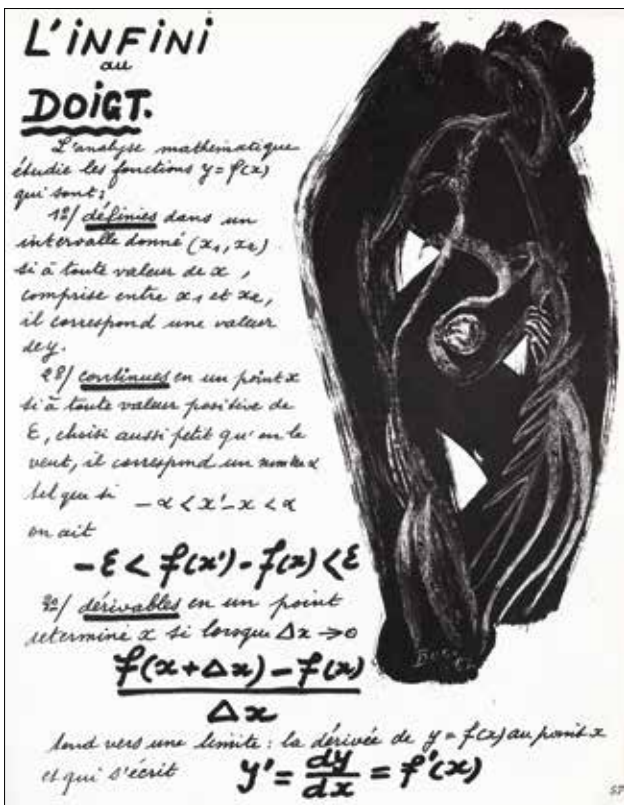 L'iNFiNi
au
DOiGT.
L'analyse mathématique
étudie les fonctions y = f(x)
qui sont:
1º/ définies dans un
intervalle donné (x₁, x₂)
si à toute valeur de x,
comprise entre x₁ et x₂,
il correspond une valeur
de y.
2º/ continues en un point x
si à toute valeur positive de
ε, choisi aussi petit qu'on le
veut, il correspond un nombre α
tel que si -α < x'-x < α
on ait
-ε < f(x') - f(x) < ε
3º/ dérivables en un point
déterminé x si lorsque Δx → 0
f(x+Δx) - f(x)
Δx
tend vers une limite: la dérivée de y = f(x) au point x
et qui s'écrit y' = dy/dx = f'(x)
57